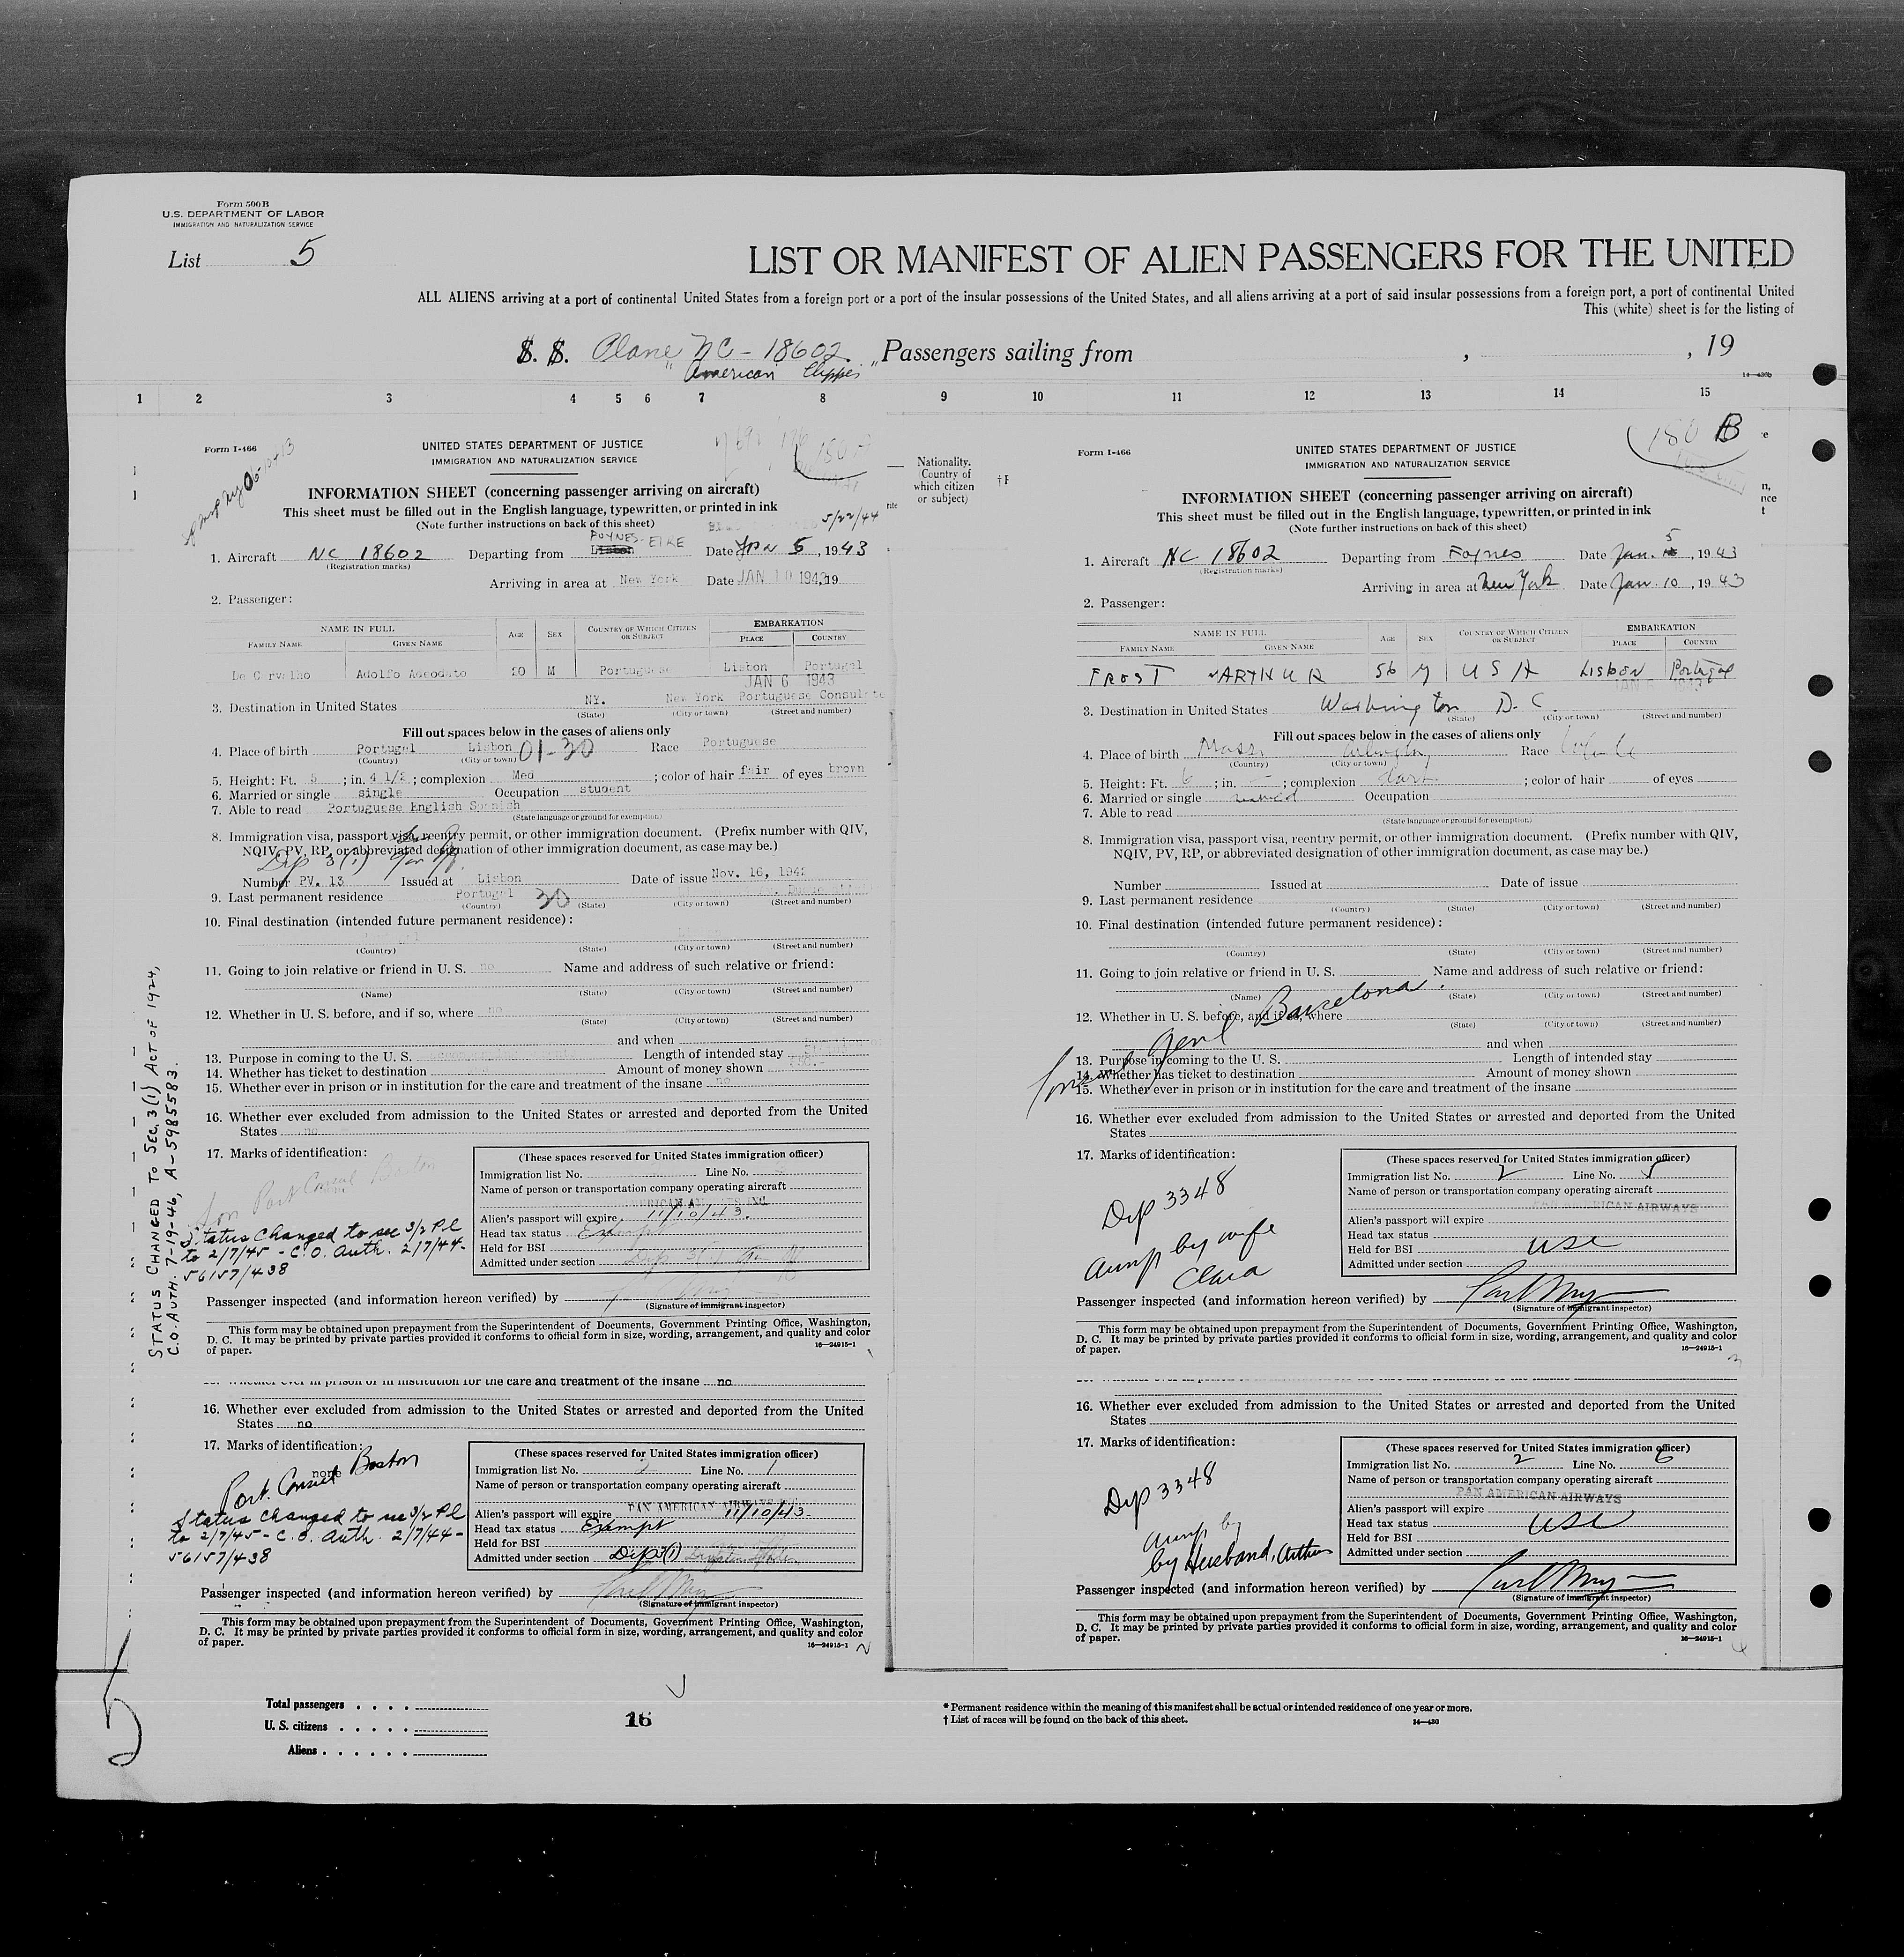 Form 500 B
U.S. DEPARTMENT OF LABOR
IMMIGRATION AND NATURALIZATION SERVICE
List 5
LIST OR MANIFEST OF ALIEN PASSENGERS FOR THE UNITED
ALL ALIENS arriving at a port of continental United States from a foreign port or a port of the insular possessions of the United States, and all aliens arriving at a port of said insular possessions from a foreign port, a port of continental United
This (white) sheet is for the listing of
S. S. Plane NC-18602. Passengers sailing from , , 19
"American Clipper"
14—430b
1 2 3 4 5 6 7 8 9 10 11 12 13 14 15
Form I-466
UNITED STATES DEPARTMENT OF JUSTICE
IMMIGRATION AND NATURALIZATION SERVICE
INFORMATION SHEET (concerning passenger arriving on aircraft)
This sheet must be filled out in the English language, typewritten, or printed in ink
(Note further instructions on back of this sheet)
5/22/44
FOYNES-EIRE
1. Aircraft NC 18602 Departing from Lisbon Date JAN 5, 1943
(Registration marks)
Arriving in area at New York Date JAN 10 1943, 19
2. Passenger:
NAME IN FULL AGE SEX COUNTRY OF WHICH CITIZEN OR SUBJECT EMBARKATION
FAMILY NAME GIVEN NAME PLACE COUNTRY
De Carvalho Adolfo Adeodato 20 M Portuguese Lisbon Portugal
JAN 6 1943
3. Destination in United States NY. New York Portuguese Consulate
(State) (City or town) (Street and number)
Fill out spaces below in the cases of aliens only
4. Place of birth Portugal Lisbon 01-30 Race Portuguese
(Country) (City or town)
5. Height: Ft. 5; in. 4 1/2; complexion Med; color of hair fair of eyes brown
6. Married or single single Occupation student
7. Able to read Portuguese English Spanish
(State language or ground for exemption)
8. Immigration visa, passport visa, reentry permit, or other immigration document. (Prefix number with QIV,
NQIV, PV, RP, or abbreviated designation of other immigration document, as case may be.)
Dip 3(1)
Number PV. 13 Issued at Lisbon Date of issue Nov. 16, 1942
9. Last permanent residence Portugal 30
(Country) (State) (City or town) (Street and number)
10. Final destination (intended future permanent residence):
(Country) (State) (City or town) (Street and number)
11. Going to join relative or friend in U. S. no Name and address of such relative or friend:
(Name) (State) (City or town) (Street and number)
12. Whether in U. S. before, and if so, where no
(State) (City or town) (Street and number)
and when
13. Purpose in coming to the U. S. Length of intended stay
14. Whether has ticket to destination Amount of money shown
15. Whether ever in prison or in institution for the care and treatment of the insane no
16. Whether ever excluded from admission to the United States or arrested and deported from the United
States no
17. Marks of identification:
Son Port Consul Boston
Status Changed to sec 3/2 Pl
to 2/7/45 - C.O. Auth. 2/7/44-
56157/438
STATUS CHANGED TO SEC. 3(1) ACT OF 1924,
C.O. AUTH. 7-19-46, A-5985583.
(These spaces reserved for United States immigration officer)
Immigration list No. Line No.
Name of person or transportation company operating aircraft
Alien's passport will expire 11/10/43.
Head tax status Exempt
Held for BSI
Admitted under section Dip 3(1)
Passenger inspected (and information hereon verified) by
(Signature of immigrant inspector)
This form may be obtained upon prepayment from the Superintendent of Documents, Government Printing Office, Washington,
D. C. It may be printed by private parties provided it conforms to official form in size, wording, arrangement, and quality and color
of paper. 16—24915-1
for the care and treatment of the insane no
16. Whether ever excluded from admission to the United States or arrested and deported from the United
States no
17. Marks of identification:
none
Port. Consul Boston
Status changed to sec 3/2 Pl
to 2/7/45 - C.O. Auth. 2/7/44-
56157/438
(These spaces reserved for United States immigration officer)
Immigration list No. 2 Line No. 1
Name of person or transportation company operating aircraft
PAN AMERICAN AIRWAYS INC.
Alien's passport will expire 11/10/43.
Head tax status Exempt
Held for BSI
Admitted under section Dip 3(1)
Passenger inspected (and information hereon verified) by
(Signature of immigrant inspector)
This form may be obtained upon prepayment from the Superintendent of Documents, Government Printing Office, Washington,
D. C. It may be printed by private parties provided it conforms to official form in size, wording, arrangement, and quality and color
of paper. 16—24915-1
2
Nationality.
(Country of
which citizen
or subject)
Form I-466
180 B
UNITED STATES DEPARTMENT OF JUSTICE
IMMIGRATION AND NATURALIZATION SERVICE
INFORMATION SHEET (concerning passenger arriving on aircraft)
This sheet must be filled out in the English language, typewritten, or printed in ink
(Note further instructions on back of this sheet)
1. Aircraft NC 18602 Departing from Foynes Date Jan. 5, 1943
(Registration marks)
Arriving in area at New York Date Jan. 10, 1943
2. Passenger:
NAME IN FULL AGE SEX COUNTRY OF WHICH CITIZEN OR SUBJECT EMBARKATION
FAMILY NAME GIVEN NAME PLACE COUNTRY
FROST ARTHUR 56 M USA LISBON Portugal
3. Destination in United States Washington D.C.
(State) (City or town) (Street and number)
Fill out spaces below in the cases of aliens only
4. Place of birth Mass. Arlington Race White
(Country) (City or town)
5. Height: Ft. 6; in. —; complexion dark; color of hair of eyes
6. Married or single married Occupation
7. Able to read
(State language or ground for exemption)
8. Immigration visa, passport visa, reentry permit, or other immigration document. (Prefix number with QIV,
NQIV, PV, RP, or abbreviated designation of other immigration document, as case may be.)
Number Issued at Date of issue
9. Last permanent residence
(Country) (State) (City or town) (Street and number)
10. Final destination (intended future permanent residence):
(Country) (State) (City or town) (Street and number)
11. Going to join relative or friend in U. S. Name and address of such relative or friend:
(Name) (State) (City or town) (Street and number)
Consul Genl Barcelona.
12. Whether in U. S. before, and if so, where
(State) (City or town) (Street and number)
and when
13. Purpose in coming to the U. S. Length of intended stay
14. Whether has ticket to destination Amount of money shown
15. Whether ever in prison or in institution for the care and treatment of the insane
16. Whether ever excluded from admission to the United States or arrested and deported from the United
States
17. Marks of identification:
Dip 3348
accmp by wife
Clara
(These spaces reserved for United States immigration officer)
Immigration list No. 2 Line No. 5
Name of person or transportation company operating aircraft
PAN AMERICAN AIRWAYS
Alien's passport will expire
Head tax status
Held for BSI USC
Admitted under section
Passenger inspected (and information hereon verified) by
(Signature of immigrant inspector)
This form may be obtained upon prepayment from the Superintendent of Documents, Government Printing Office, Washington,
D. C. It may be printed by private parties provided it conforms to official form in size, wording, arrangement, and quality and color
of paper. 16—24915-1
3
16. Whether ever excluded from admission to the United States or arrested and deported from the United
States
17. Marks of identification:
Dip 3348
accmp by
by Husband, Arthur
(These spaces reserved for United States immigration officer)
Immigration list No. 2 Line No. 6
Name of person or transportation company operating aircraft
PAN AMERICAN AIRWAYS
Alien's passport will expire
Head tax status USC
Held for BSI
Admitted under section
Passenger inspected (and information hereon verified) by
(Signature of immigrant inspector)
This form may be obtained upon prepayment from the Superintendent of Documents, Government Printing Office, Washington,
D. C. It may be printed by private parties provided it conforms to official form in size, wording, arrangement, and quality and color
of paper. 16—24915-1
4
5
Total passengers . . . .
U. S. citizens . . . . .
Aliens . . . . . .
16
* Permanent residence within the meaning of this manifest shall be actual or intended residence of one year or more.
† List of races will be found on the back of this sheet. 14—430